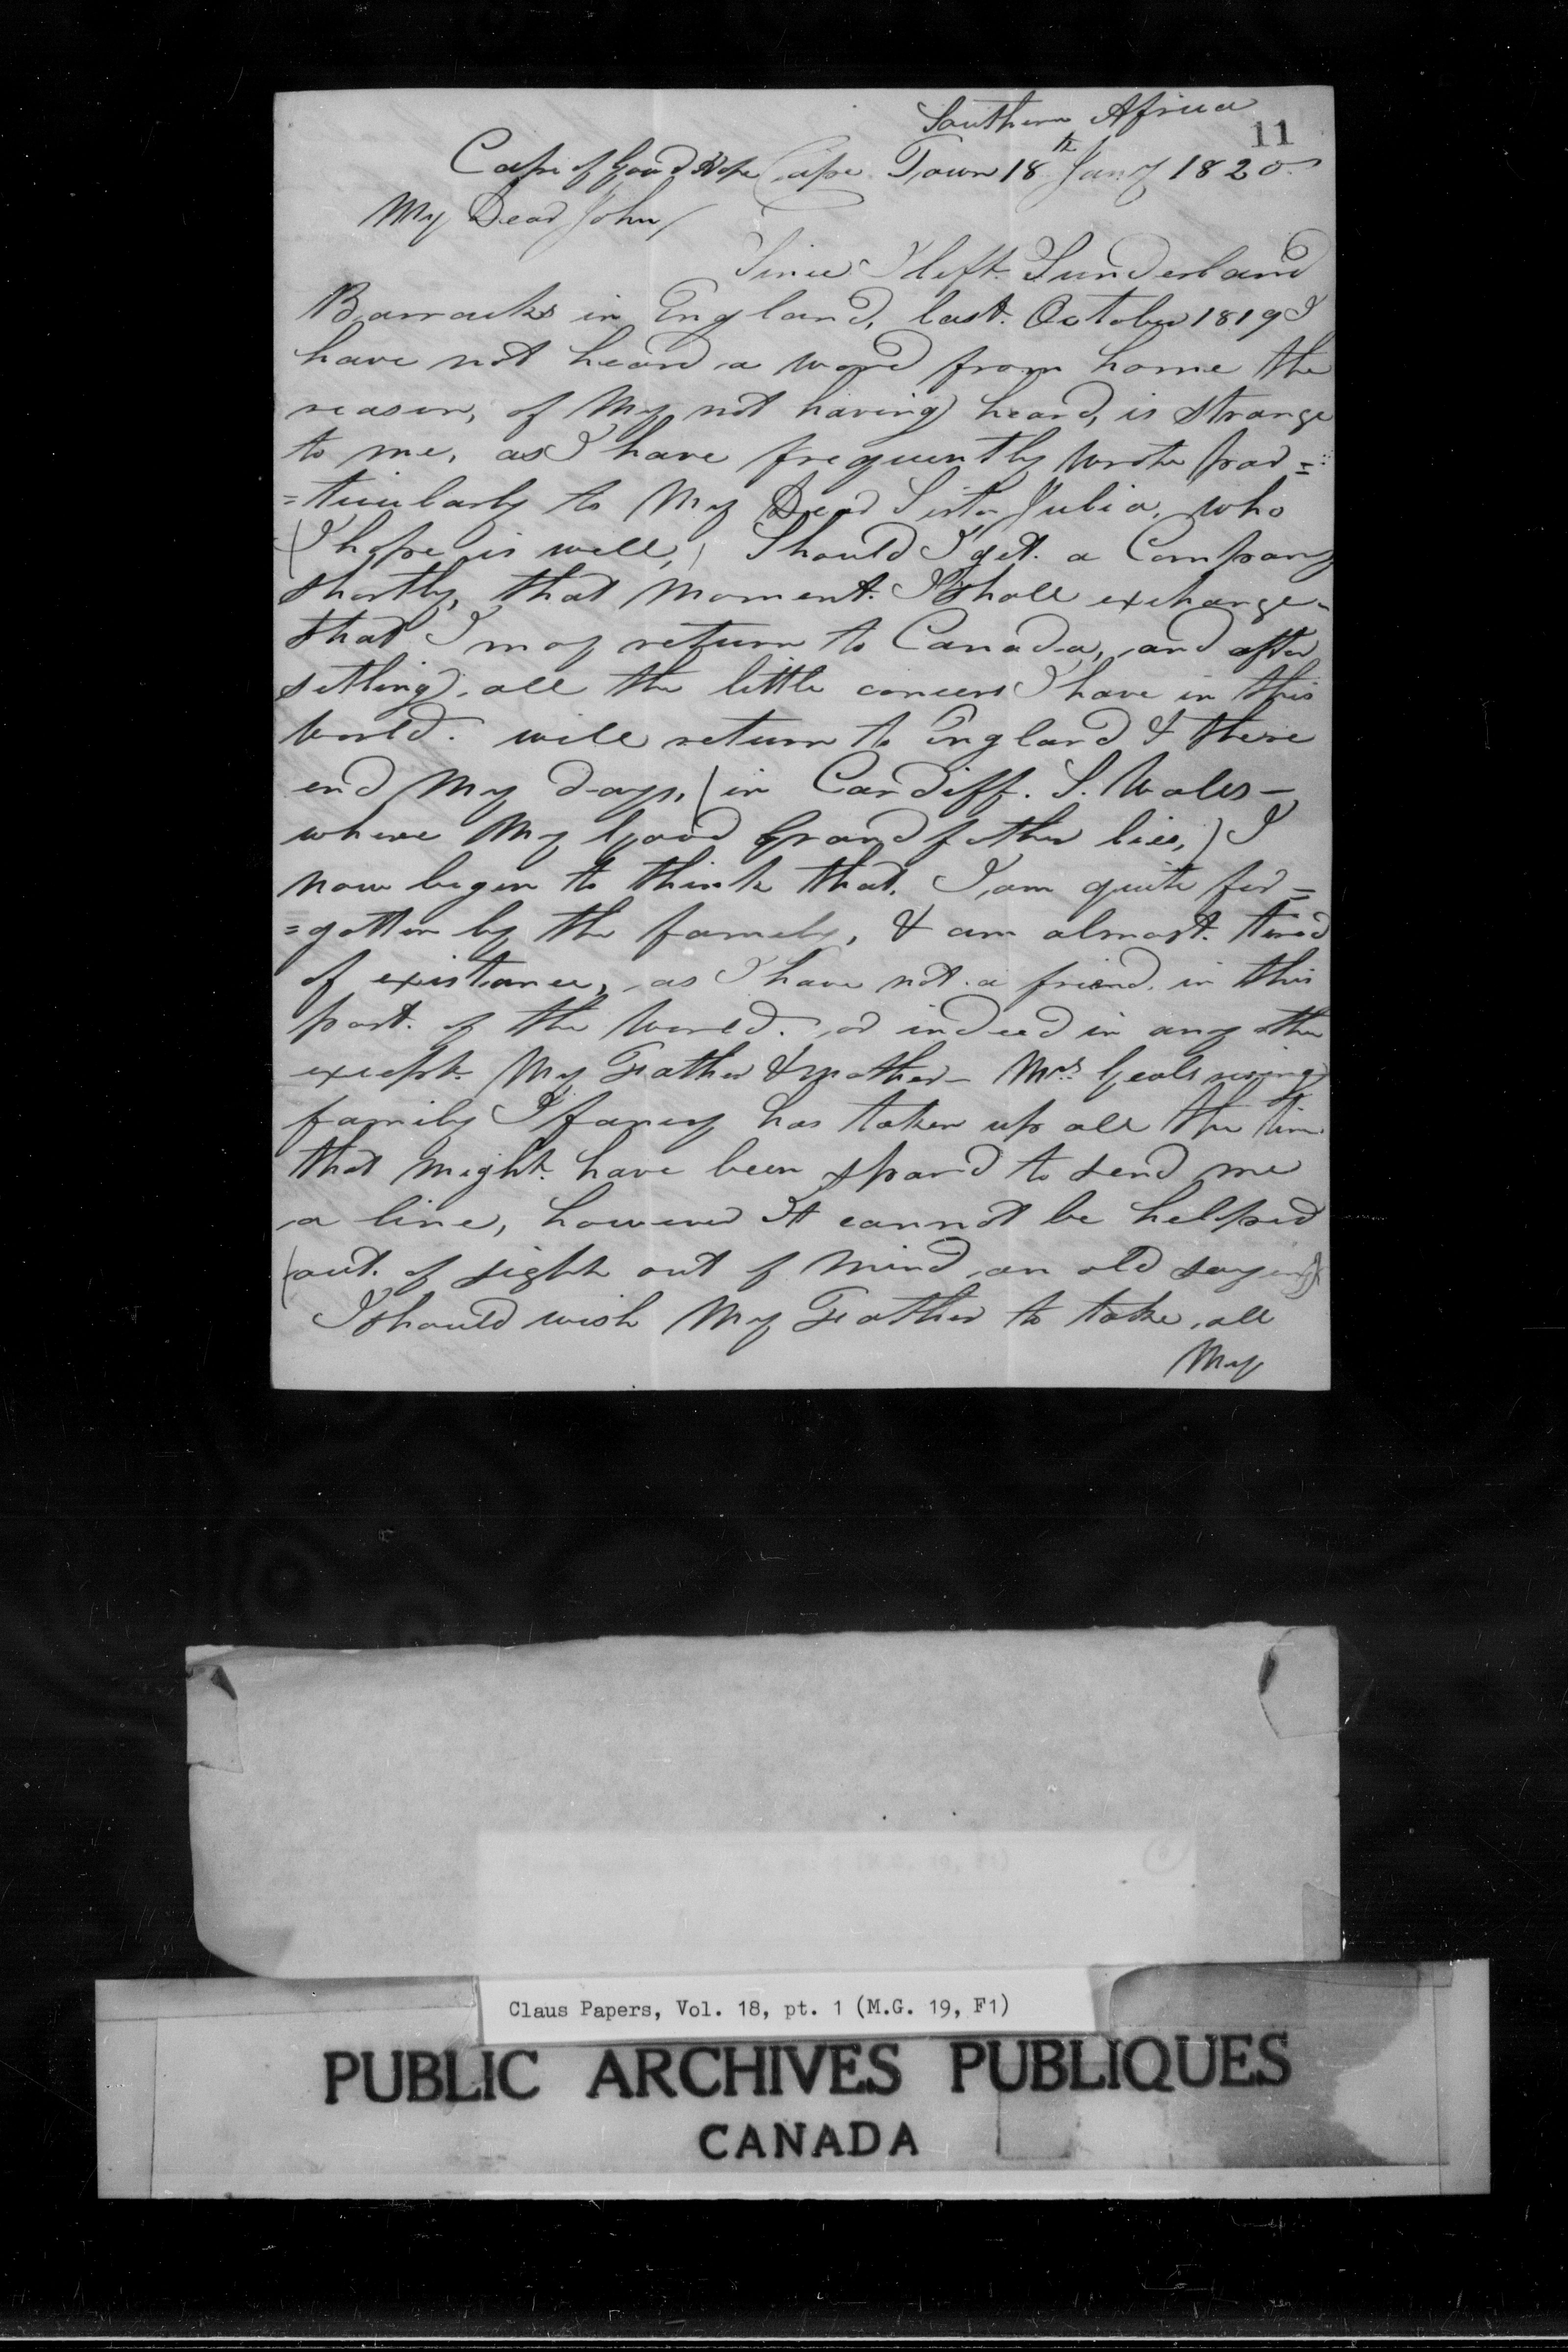 Southern Africa
11
Cape of Good Hope Cape Town 18th Jany 1820
My Dear John/
Since I left Sunderland
Barracks in England, last October 1819 I
have not heard a word from home the
reason, of My not having heard, is strange
to me, as I have frequently wrote par=
=ticularly to My Dear Sister Julia, who
(I hope is well,) Should I get a Company
shortly, that Moment I shall exchange
that I may return to Canada, and after
setling all the little concern I have in this
World. will return to England & there
end My days, (in Cardiff. S. Wales –
where My Good Grandfather lies,) I
now began to think that, I am quite for=
=gotten by the family, & am almost tired
of existance, as I have not a friend in this
part of the World. or indeed in any other
except My Father & Mother – Mrs Geals rising
family I fancy has taken up all the time
that might have been spard to send me
a line, however It cannot be helped
(out of sight out of Mind, an old saying)
I should wish My Father to take, all
My
Claus Papers, Vol. 18, pt. 1 (M.G. 19, F1)
PUBLIC ARCHIVES PUBLIQUES
CANADA